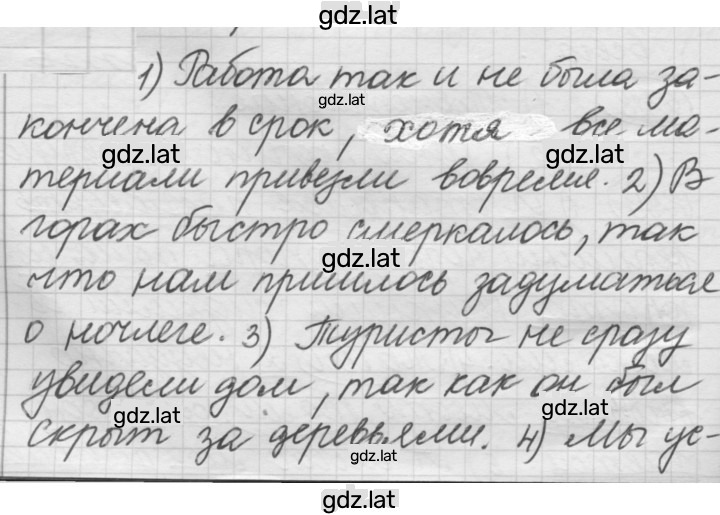 gdz.lat
1) Работа так и не была за-
gdz.lat
кончена в срок, хотя все ма-
gdz.lat gdz.lat
териали привезли вовремя. 2) В
горах быстро смеркалось, так
gdz.lat
что нам пришлось задуматься
о ночлеге. 3) Туристы не сразу
увидели дом, так как он был
gdz.lat gdz.lat
скрыт за деревьями. 4) Мы ус-
gdz.lat
gdz.lat